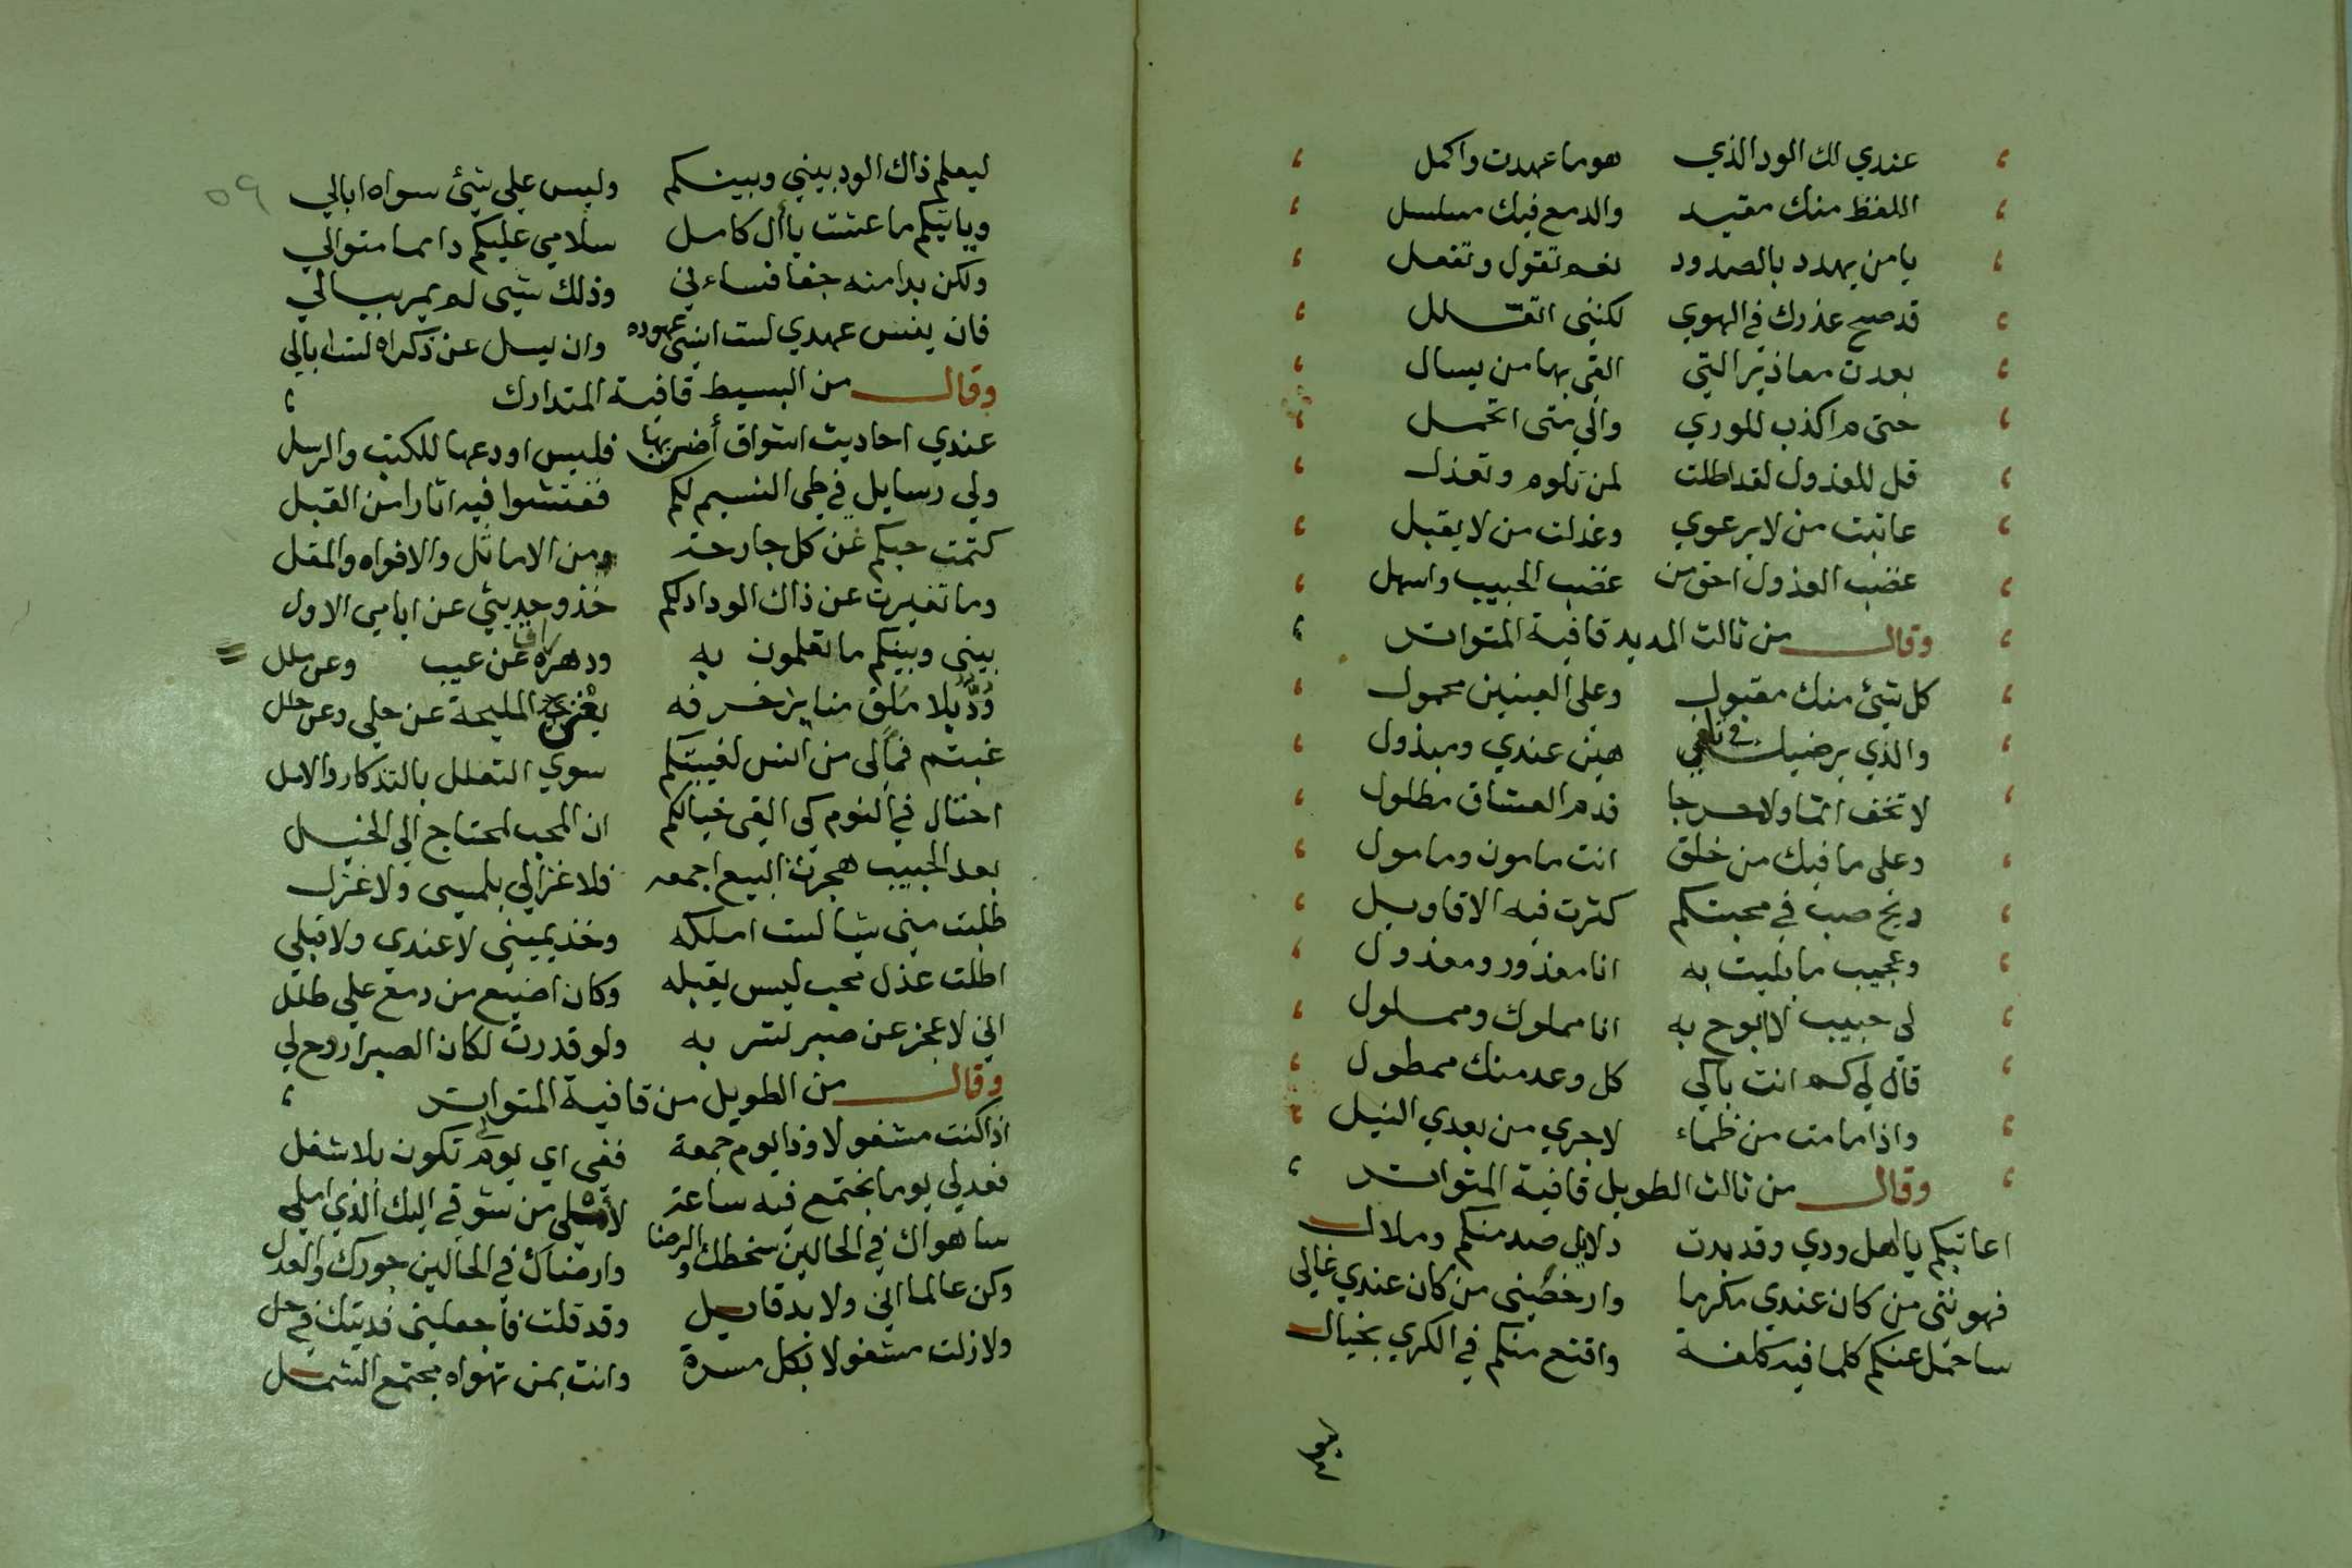 عندي لك الود الذي هو ما عهدت واكمل
اللفظ منك مقيد والدمع فيك مسلسل
يا من يهدد بالصدود نعم تقول وتفعل
قد صح عذرك في الهوي لكنني اتعلل
بعدت معاذير التي القي بها من يسال
حتى م اكذب للوري والي متى اتحمل
قل للعذول لقد اطلت لمن تلوم وتعذل
عاتبت من لا يرعوي وعذلت من لا يقبل
غضب العذول احق من غضب الحبيب واسهل
وقال من ثالث المديد قافية المتواتر
كل شئ منك مقبول وعلى العينين محمول
والذي يرضيك في تلفي هين عندي ومبذول
لا تخف اثما ولا حرجا فدم العشاق مطلول
وعلى ما فيك من خلق انت مامون ومامول
ويح صب في محبتكم كثرت فيه الاقاويل
وعجيب ما بليت به انا معذور ومعذول
لى حبيب لا ابوح به انا مملوك ومملول
قال لي كم انت باكي كل وعد منك ممطول
واذا ما مت من ظماء لا جري من بعدي النيل
وقال من ثالث الطويل قافية المتواتر
اعاتبكم يا اهل ودي وقد بدت دلايل صد منكم وملال
فهونتى من كان عندي مكرما وارخصتنى من كان عندي غالي
ساحمل عنكم كلما فيه كلفة واقنع منكم في الكري بخيال
ليعلم ذاك الود بيني وبينكم وليس علي شئ سواه ابالي
٥٩
وياتيكم ما عشت يا آل كامل سلامي عليكم دايما متوالي
ولكن بدا منه جفا فساءني وذلك شيى لم يمر ببالي
فان ينس عهدي لست انسى عهوده وان يسل عن ذكراه لست ابالي
وقال من البسيط قافية المتدارك
عندي احاديث اشواق أضن بها فليس اودعها للكتب والرسل
ولي رسايل في طى النسيم لكم ففتشوا فيه اثارا من القبل
كتمت حبكم عن كل جارحة من الاماثل والافواه والمقل
وما تغيرت عن ذاك الوداد لكم خذو حديثي عن ايامي الاول
بيني وبينكم ما تعلمون به ودهره عن عيب وعن ملل
ودّ بلا ملق منا يزخرفه يغنى المليحة عن حلي وعن حلل
غبتم فما لى من انس لغيبتكم سوي التعلل بالتذكار والامل
احتال في النوم كى القى خيالكم ان المحب لمحتاج الي الحيل
بعد الحبيب هجرت البيع اجمعه فلا غزالي بلمسى ولا غزل
طلبت منى شيا لست املكه وخذ يميني لا عندي ولا قبلي
اطلت عذل محب ليس يقبله وكان اضيع من دمع علي طلل
اني لاعجز عن صبر تشر به ولو قدرت لكان الصبر اروح لي
وقال من الطويل من قافية المتواتر
اذا كنت مشغولا وذا يوم جمعة ففى اي يوم تكون بلا شغل
فعد لي يوما نجتمع فيه ساعة لأملى من شوقي اليك الذي املي
ساهواك في الحالين سخطك والرضا وارضاك في الحالين جورك والعدل
وكن عالما اني ولا بد قايل وقد قلت فاجعلنى فديتك في حل
ولا زلت مشغولا بكل مسرة وانت بمن تهواه مجتمع الشمل